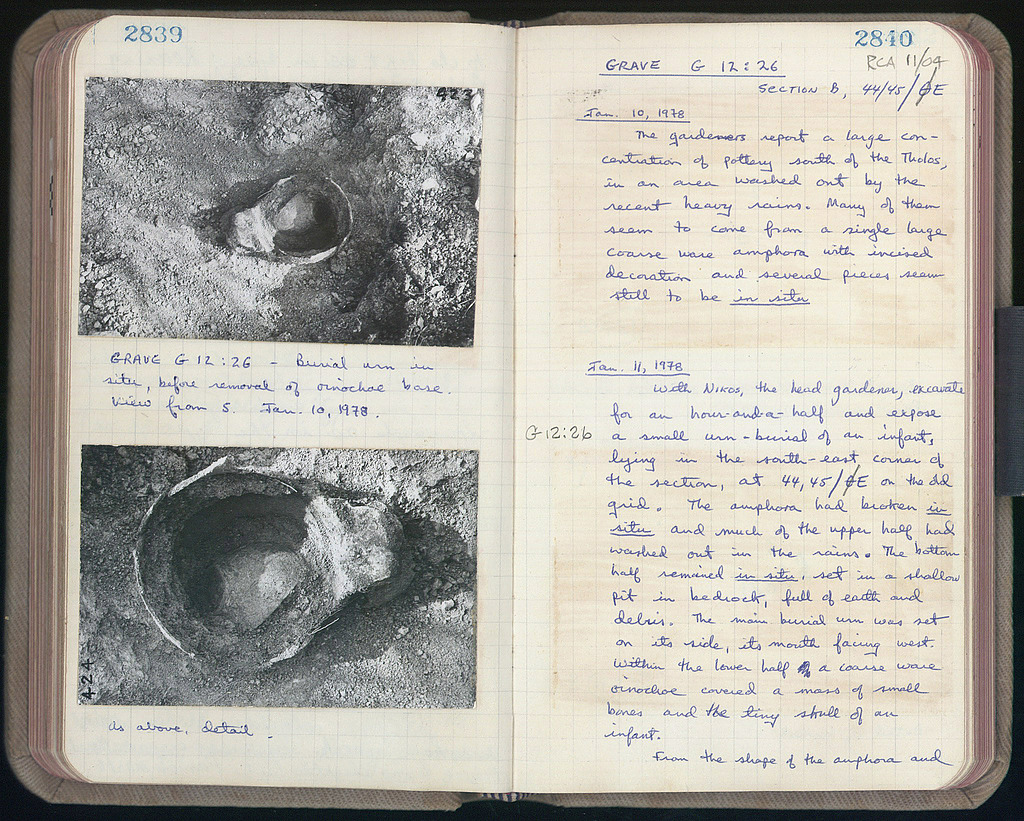 2839
GRAVE G 12:26 - Burial urn in
situ, before removal of oinochoe base.
View from S. Jan. 10, 1978.
424
as above, detail.
2840
GRAVE G 12:26
RCA 11/04
SECTION B, 44/45/ΣE
Jan. 10, 1978
The gardeners report a large con-
centration of pottery south of the Tholos,
in an area washed out by the
recent heavy rains. Many of them
seem to come from a single large
coarse ware amphora with incised
decoration and several pieces seem
still to be in situ
Jan. 11, 1978
With Nikos, the head gardener, excavate
for an hour-and-a-half and expose
G 12:26
a small urn-burial of an infant,
lying in the south-east corner of
the section, at 44, 45/ on the old
grid. The amphora had broken in
situ and much of the upper half had
washed out in the rains. The bottom
half remained in situ, set in a shallow
pit in bedrock, full of earth and
debris. The main burial urn was set
on its side, its mouth facing west.
Within the lower half a coarse ware
oinochoe covered a mass of small
bones and the tiny skull of an
infant.
From the shape of the amphora and